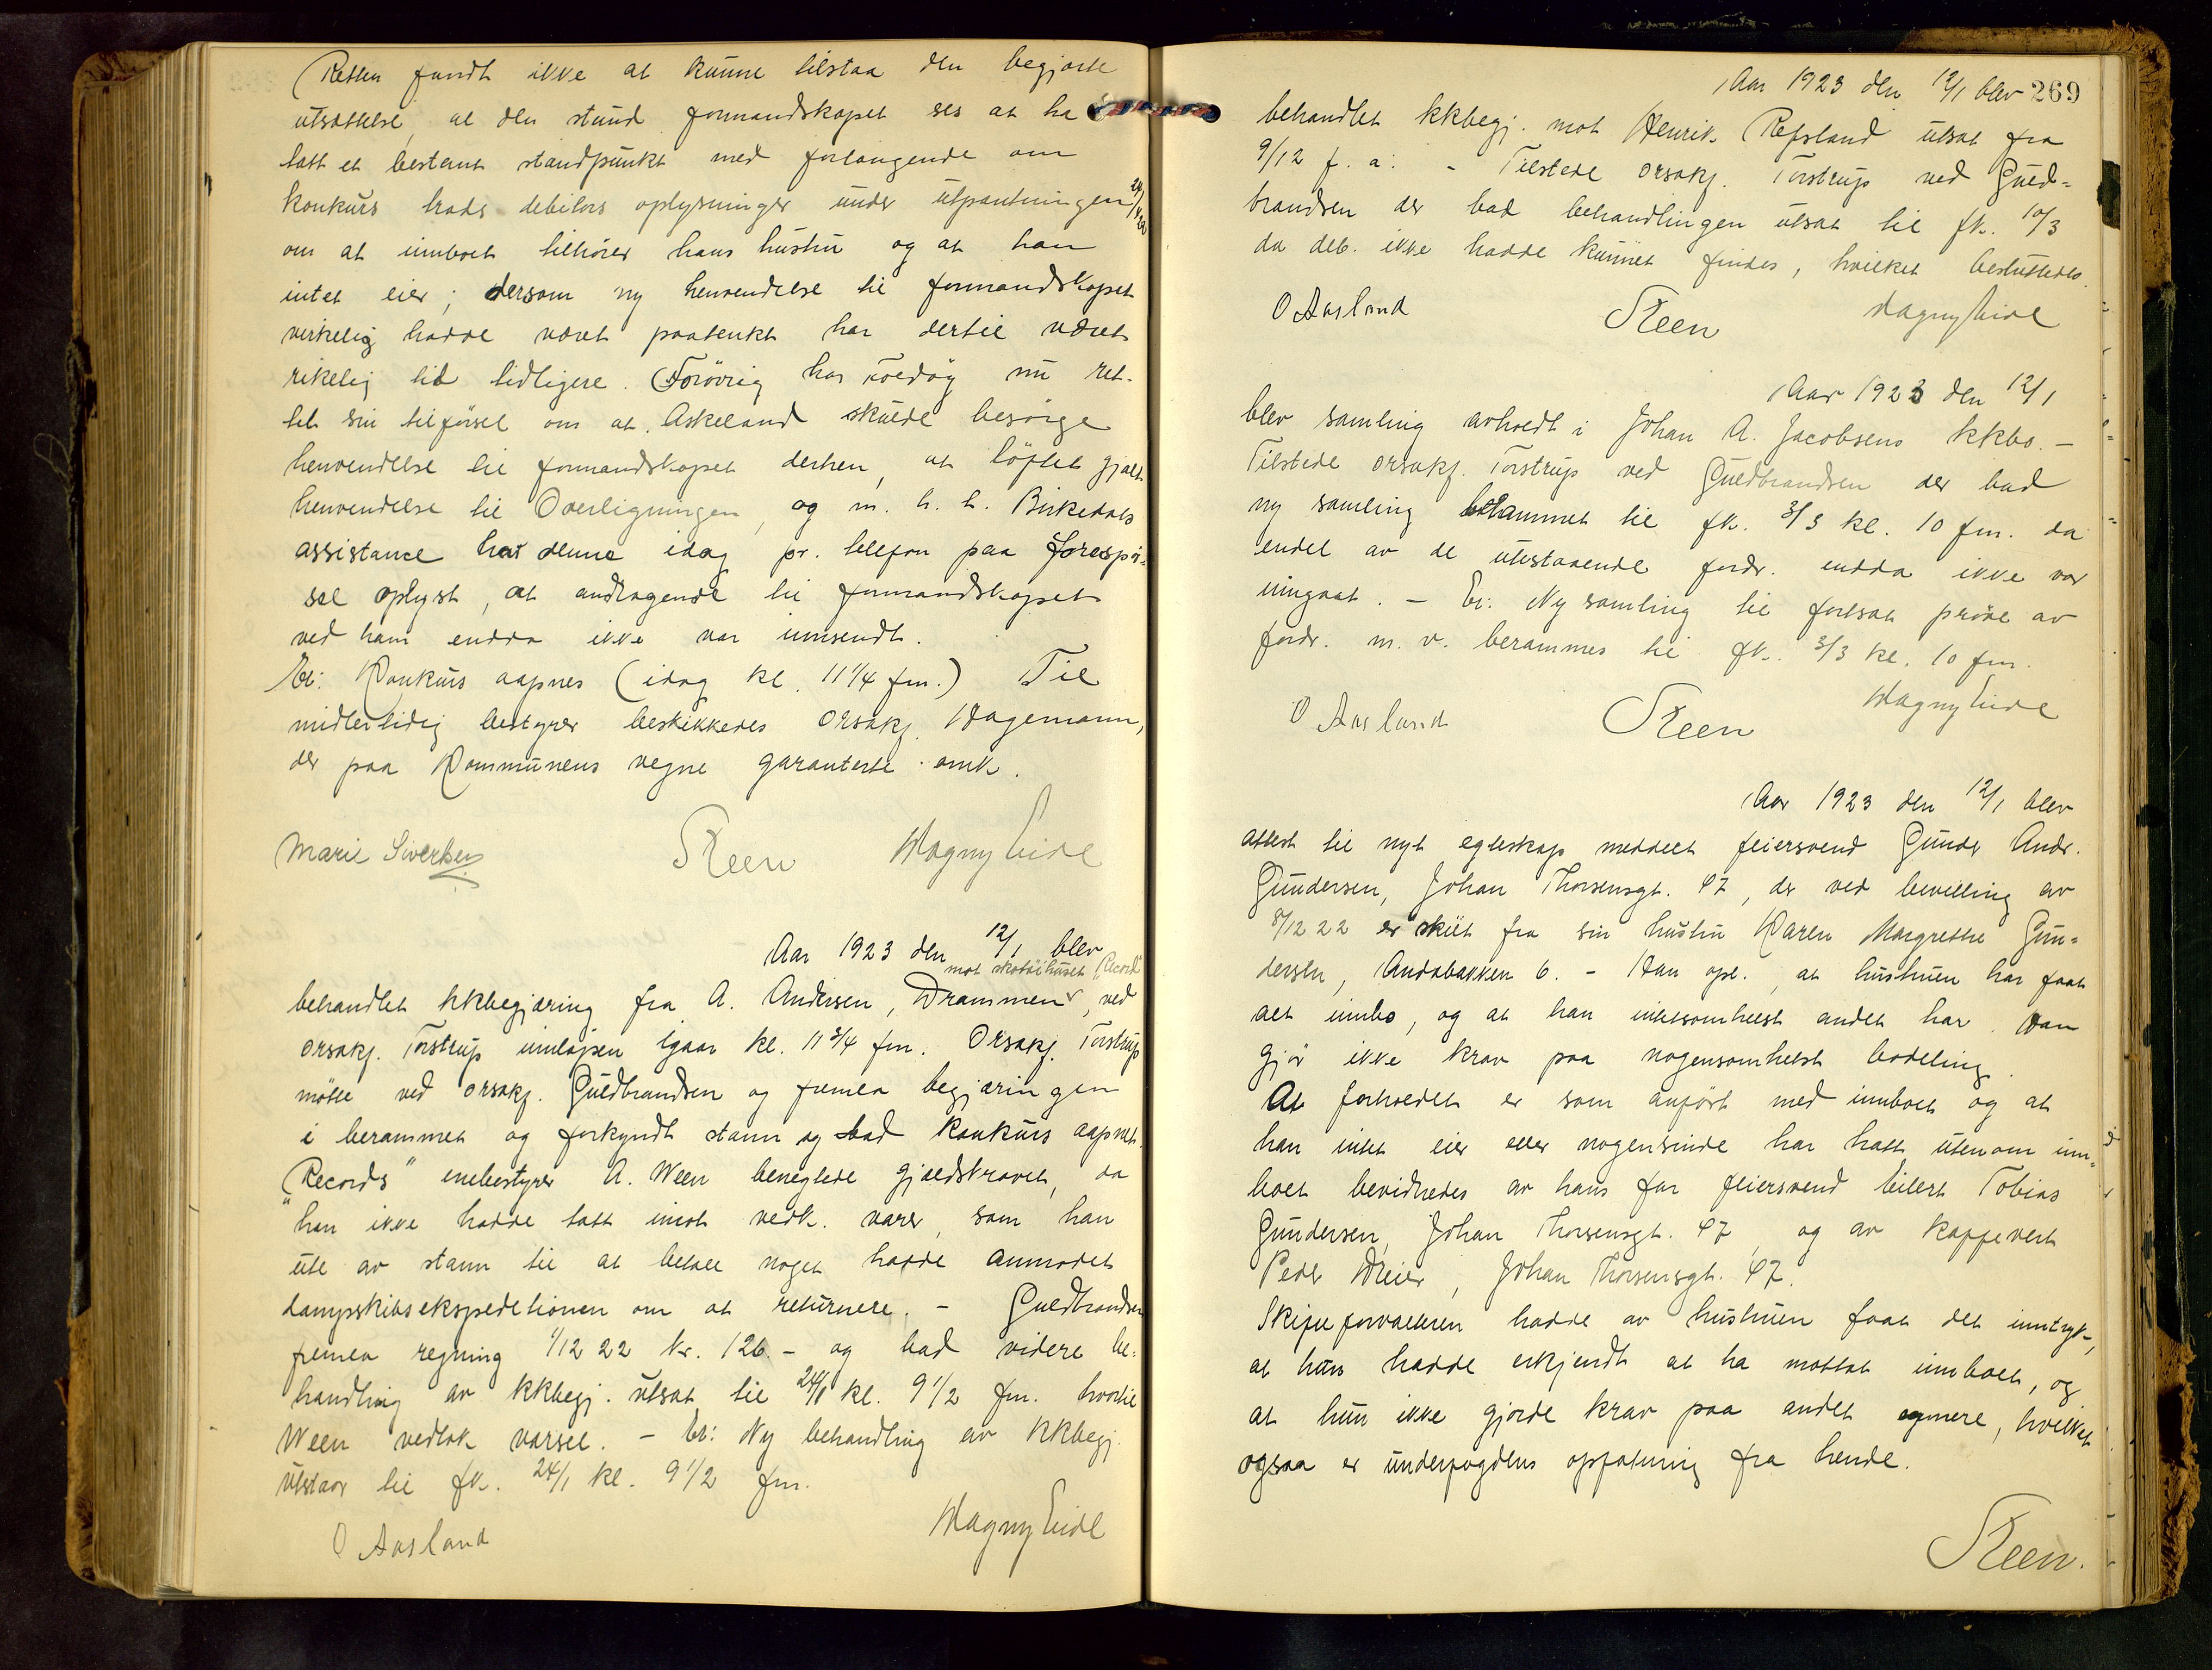 Retten fandt ikke at kunne tilstaa den begjærte
utsættelse, al den stund formandskapet ses at ha
tatt et bestemt standpunkt med forlangende om
konkurs trods debitors oplysninger under utpantningen 24/4 22
om at innboet tilhører hans hustru og at han
intet eier; dersom ny henvendelse til formandskapet
virkelig hadde været paatenkt har dertil været
rikelig tid tidligere. Forøvrig har nu ret-
tet sin tilførsel om at Askeland skulde besørge
henvendelse til formandskapet derhen, at løftet gjaldt
henvendelse til Overligningen, og m. h. t. Birkedals
assistance har denne idag pr. telefon paa forespør-
sel oplyst, at andragende til formandskapet
ved ham endda ikke var innsendt.
Er: Konkurs aapnes (idag kl. 11 1/4 fm.) Til
midlertidig bestyrer beskikkedes orsakf. Hagemann,
der paa Kommunens vegne garanterte omk.
Marie Sivertsen Steen Magny Eide
Aar 1923 den 12/1 blev
mot skotøihuset "Record"
behandlet kkbegjæring fra A. Andersen, Drammen, ved
orsakf. Torstrup innløpen igaar kl. 11 3/4 fm. Orsakf. Torstrup
møtte ved orsakf. Guldbrandsen og fremla begjæringen
i berammet og forkyndt stann og bad konkurs aapnet.
"Records" enebestyrer A. Ween benegtede gjældskravet, da
han ikke hadde tatt imot vedk. varer, som han
ute av stann til at betale noget hadde anmodet
dampskibsekspeditionen om at returnere. - Guldbrandsen
fremla regning 1/12 22 kr. 126.- og bad videre be-
handling av kkbegj. utsat til 24/1 kl. 9 1/2 fm. hvortil
Ween vedtok varsel. - Er: Ny behandling av kkbegj.
utstaar til fk. 24/1 kl. 9 1/2 fm.
O Aasland Magny Eide
269
Aar 1923 den 12/1 blev
behandlet kkbegj. mot Henrik Refsland utsat fra
9/12 f. a. - Tilstede orsakf. Torstrup ved Guld-
brandsen der bad behandlingen utsat til fk. 10/3
da deb. ikke hadde kunnet findes, hvilket besluttedes.
O Aasland Steen Magny Eide
Aar 1923 den 12/1
blev samling avholdt i Johan A. Jacobsens kkbo. -
Tilstede orsakf. Torstrup ved Guldbrandsen der bad
ny samling berammet til fk. 3/3 kl. 10 fm. da
endel av de utestaaende fordr. endda ikke var
inngaat. - Er: Ny samling til fortsat prøve av
fordr. m. v. berammes til fk. 3/3 kl. 10 fm.
O Aasland Steen Magny Eide
Aar 1923 den 12/1 blev
attest til nyt egteskap meddelt feiersvend Gunder Andr.
Gundersen, Johan Thorsensgt. 47, der ved bevilling av
8/12 22 er skilt fra sin hustru Karen Margrethe Gun-
dersen, Andabakken 6. - Han opl. at hustruen har faat
alt innbo, og at han intetsomhelst andet har. Han
gjør ikke krav paa nogensomhelst bodeling.
At forholdet er som anført med innboet og at
han intet eier eller nogensinde har hatt utenom inn-
boet bevidnedes av hans far feiersvend Eilert Tobias
Gundersen, Johan Thorsensgt. 47, og av kaffevert
Peder Meier, Johan Thorsensgt. 47.
Skifteforvalteren hadde av hustruen faat det inntryk,
at hun hadde erkjendt at ha mottat innboet, og
at hun ikke gjorde krav paa andet og mere, hvilket
ogsaa er underfogdens opfatning fra hende.
Steen.